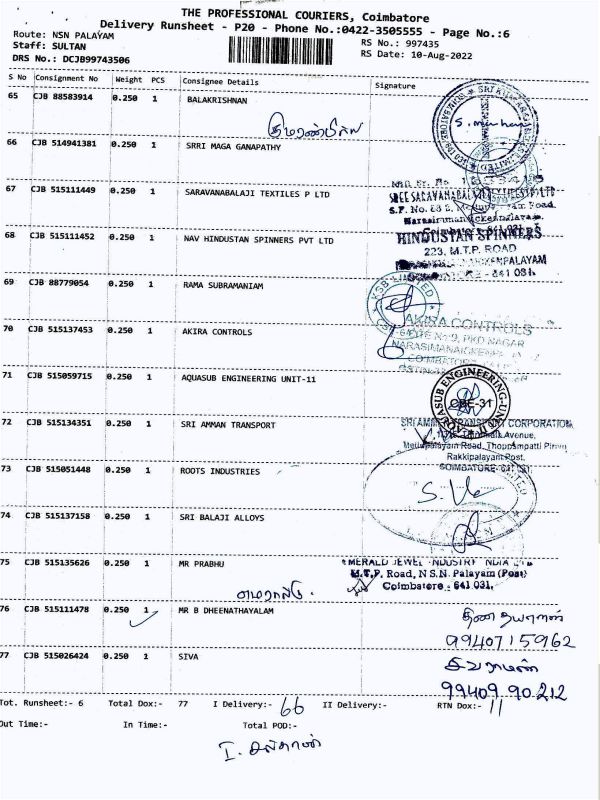 THE PROFESSIONAL COURIERS, Coimbatore
Delivery Runsheet - P20 - Phone No.:0422-3505555 - Page No.:6
Route: NSN PALAYAM
RS No.: 997435
Staff: SULTAN
RS Date: 10-Aug-2022
DRS No.: DCJB99743506
S No Consignment No Weight PCS Consignee Details Signature
65 CJB 88583914 0.250 1 BALAKRISHNAN
66 CJB 514941381 0.250 1 SRRI MAGA GANAPATHY
67 CJB 515111449 0.250 1 SARAVANABALAJI TEXTILES P LTD
68 CJB 515111452 0.250 1 NAV HINDUSTAN SPINNERS PVT LTD
HINDUSTAN SPINNERS
223, M.T.P. ROAD
69 CJB 88779054 0.250 1 RAMA SUBRAMANIAM
KSB LIMITED
70 CJB 515137453 0.250 1 AKIRA CONTROLS
AKIRA CONTROLS
71 CJB 515059715 0.250 1 AQUASUB ENGINEERING UNIT-11
AQUASUB ENGINEERING-UNIT II
CBE-31
72 CJB 515134351 0.250 1 SRI AMMAN TRANSPORT
SRI AMMAN TRANSPORT CORPORATION,
Mettupalayam Road, Thoppampatti Pirivu
Rakkipalayam Post,
73 CJB 515051448 0.250 1 ROOTS INDUSTRIES
74 CJB 515137158 0.250 1 SRI BALAJI ALLOYS
75 CJB 515135626 0.250 1 MR PRABHU
EMERALD JEWEL INDUSTRY INDIA LTD
M.T.P. Road, N.S.N. Palayam (Post)
Coimbatore - 641 031.
76 CJB 515111478 0.250 1 MR B DHEENATHAYALAM
தினதயாளன்
9940715962
77 CJB 515026424 0.250 1 SIVA
சிவராமன்
99409 90 212
Tot. Runsheet:- 6 Total Dox:- 77 I Delivery:- 66 II Delivery:- RTN Dox:- 11
Out Time:- In Time:- Total POD:-
I. சுல்தான்